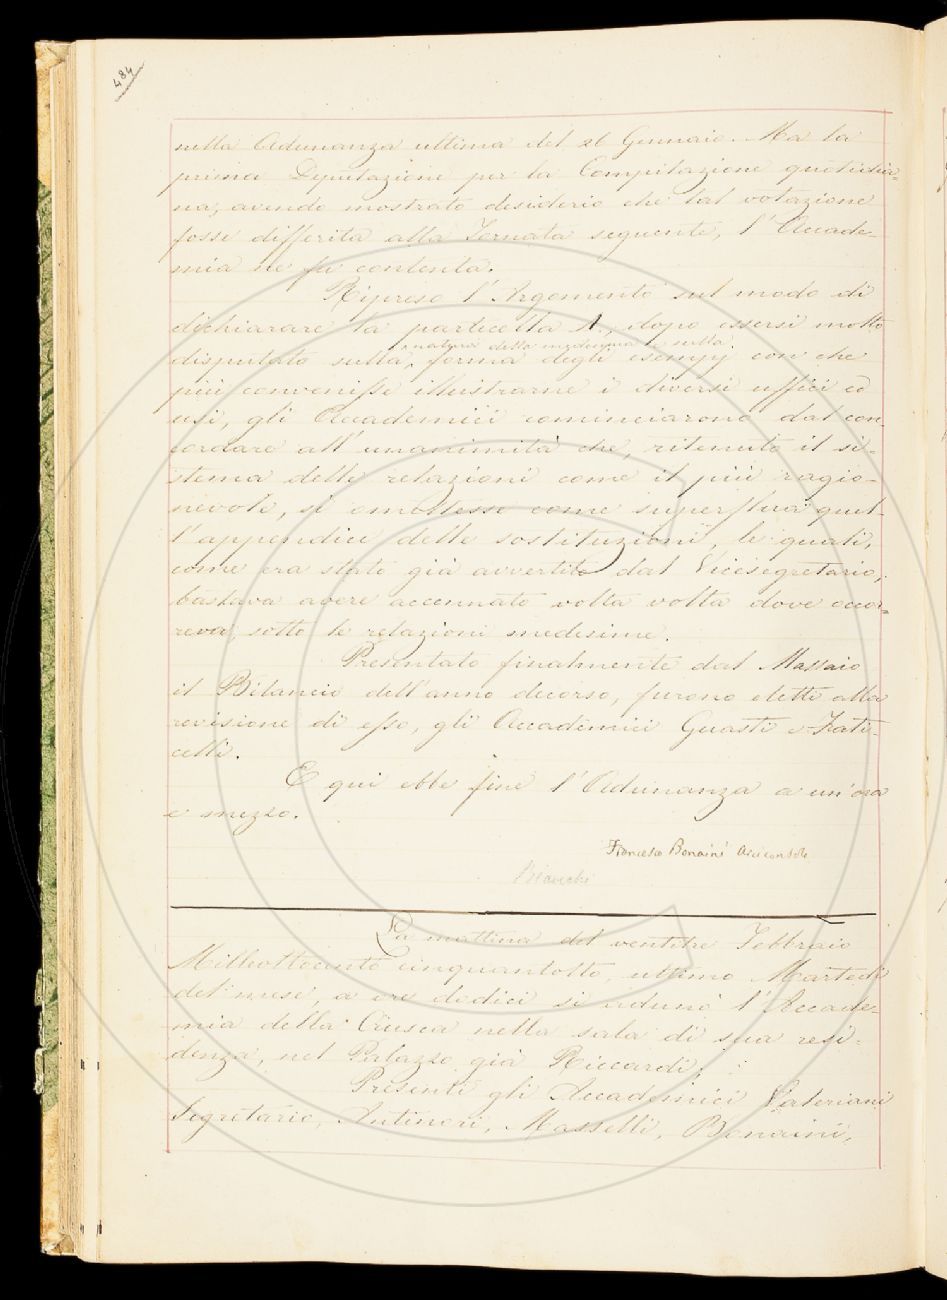 484
nella Adunanza ultima del 26 Gennaio. Ma la
prima Deputazione per la Compilazione quotidia=
na, avendo mostrato desiderio che tal votazione
fosse differita alla Tornata seguente, l'Accade-
mia ne fu contenta.
Ripreso l'Argomento sul modo di
dichiarare la particella A., dopo essersi molto
natura della medesima e sulla
disputato sulla, forma degli esempj con che
più convenisse illustrarne i diversi uffici ed
usi, gli Accademici cominciarono dal con
cordare all'unanimità che, ritenuto il si-
stema delle relazioni come il più ragio-
nevole, si omettesse come superflua quel-
l'appendice delle sostituzioni, le quali,
come era stato già avvertito dal Vicesegretario,
bastava avere accennato volta volta dove occor=
reva, sotto le relazioni medesime.
Presentato finalmente dal Massaio
il Bilancio dell'anno decorso, furono eletti alla
revisione di esso, gli Accademici Guasti e Frati-
celli.
E qui ebbe fine l'Adunanza a un'ora
e mezzo.
Francesco Bonaini Arciconsolo
Bianchi
La mattina del ventitre Febbraio
Milleottocento cinquantotto, ultimo Martedì
del mese, a ore dodici si adunò l'Accade-
mia della Crusca nella sala di sua resi-
denza, nel Palazzo già Riccardi.
Presenti gli Accademici Valeriani
Segretario, Antinori, Masselli, Bonaini,